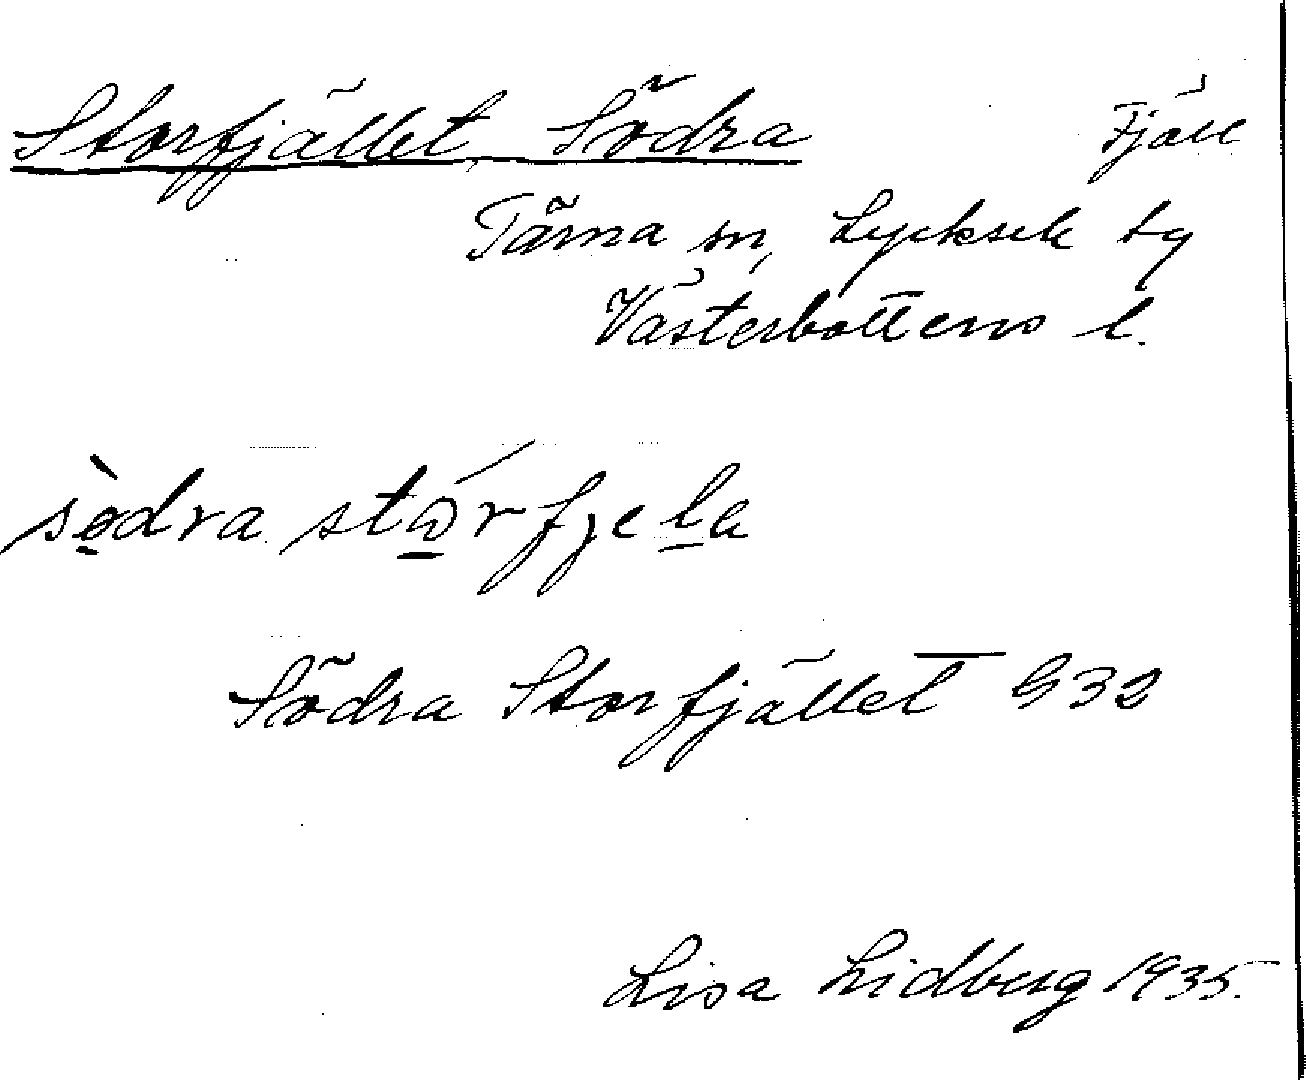 Storfjället, Södra Fjäll
Tärna sn, Lycksele tg
Västerbottens l.
södra stórfjela
Södra Storfjället G32
Lisa Lidberg 1935.